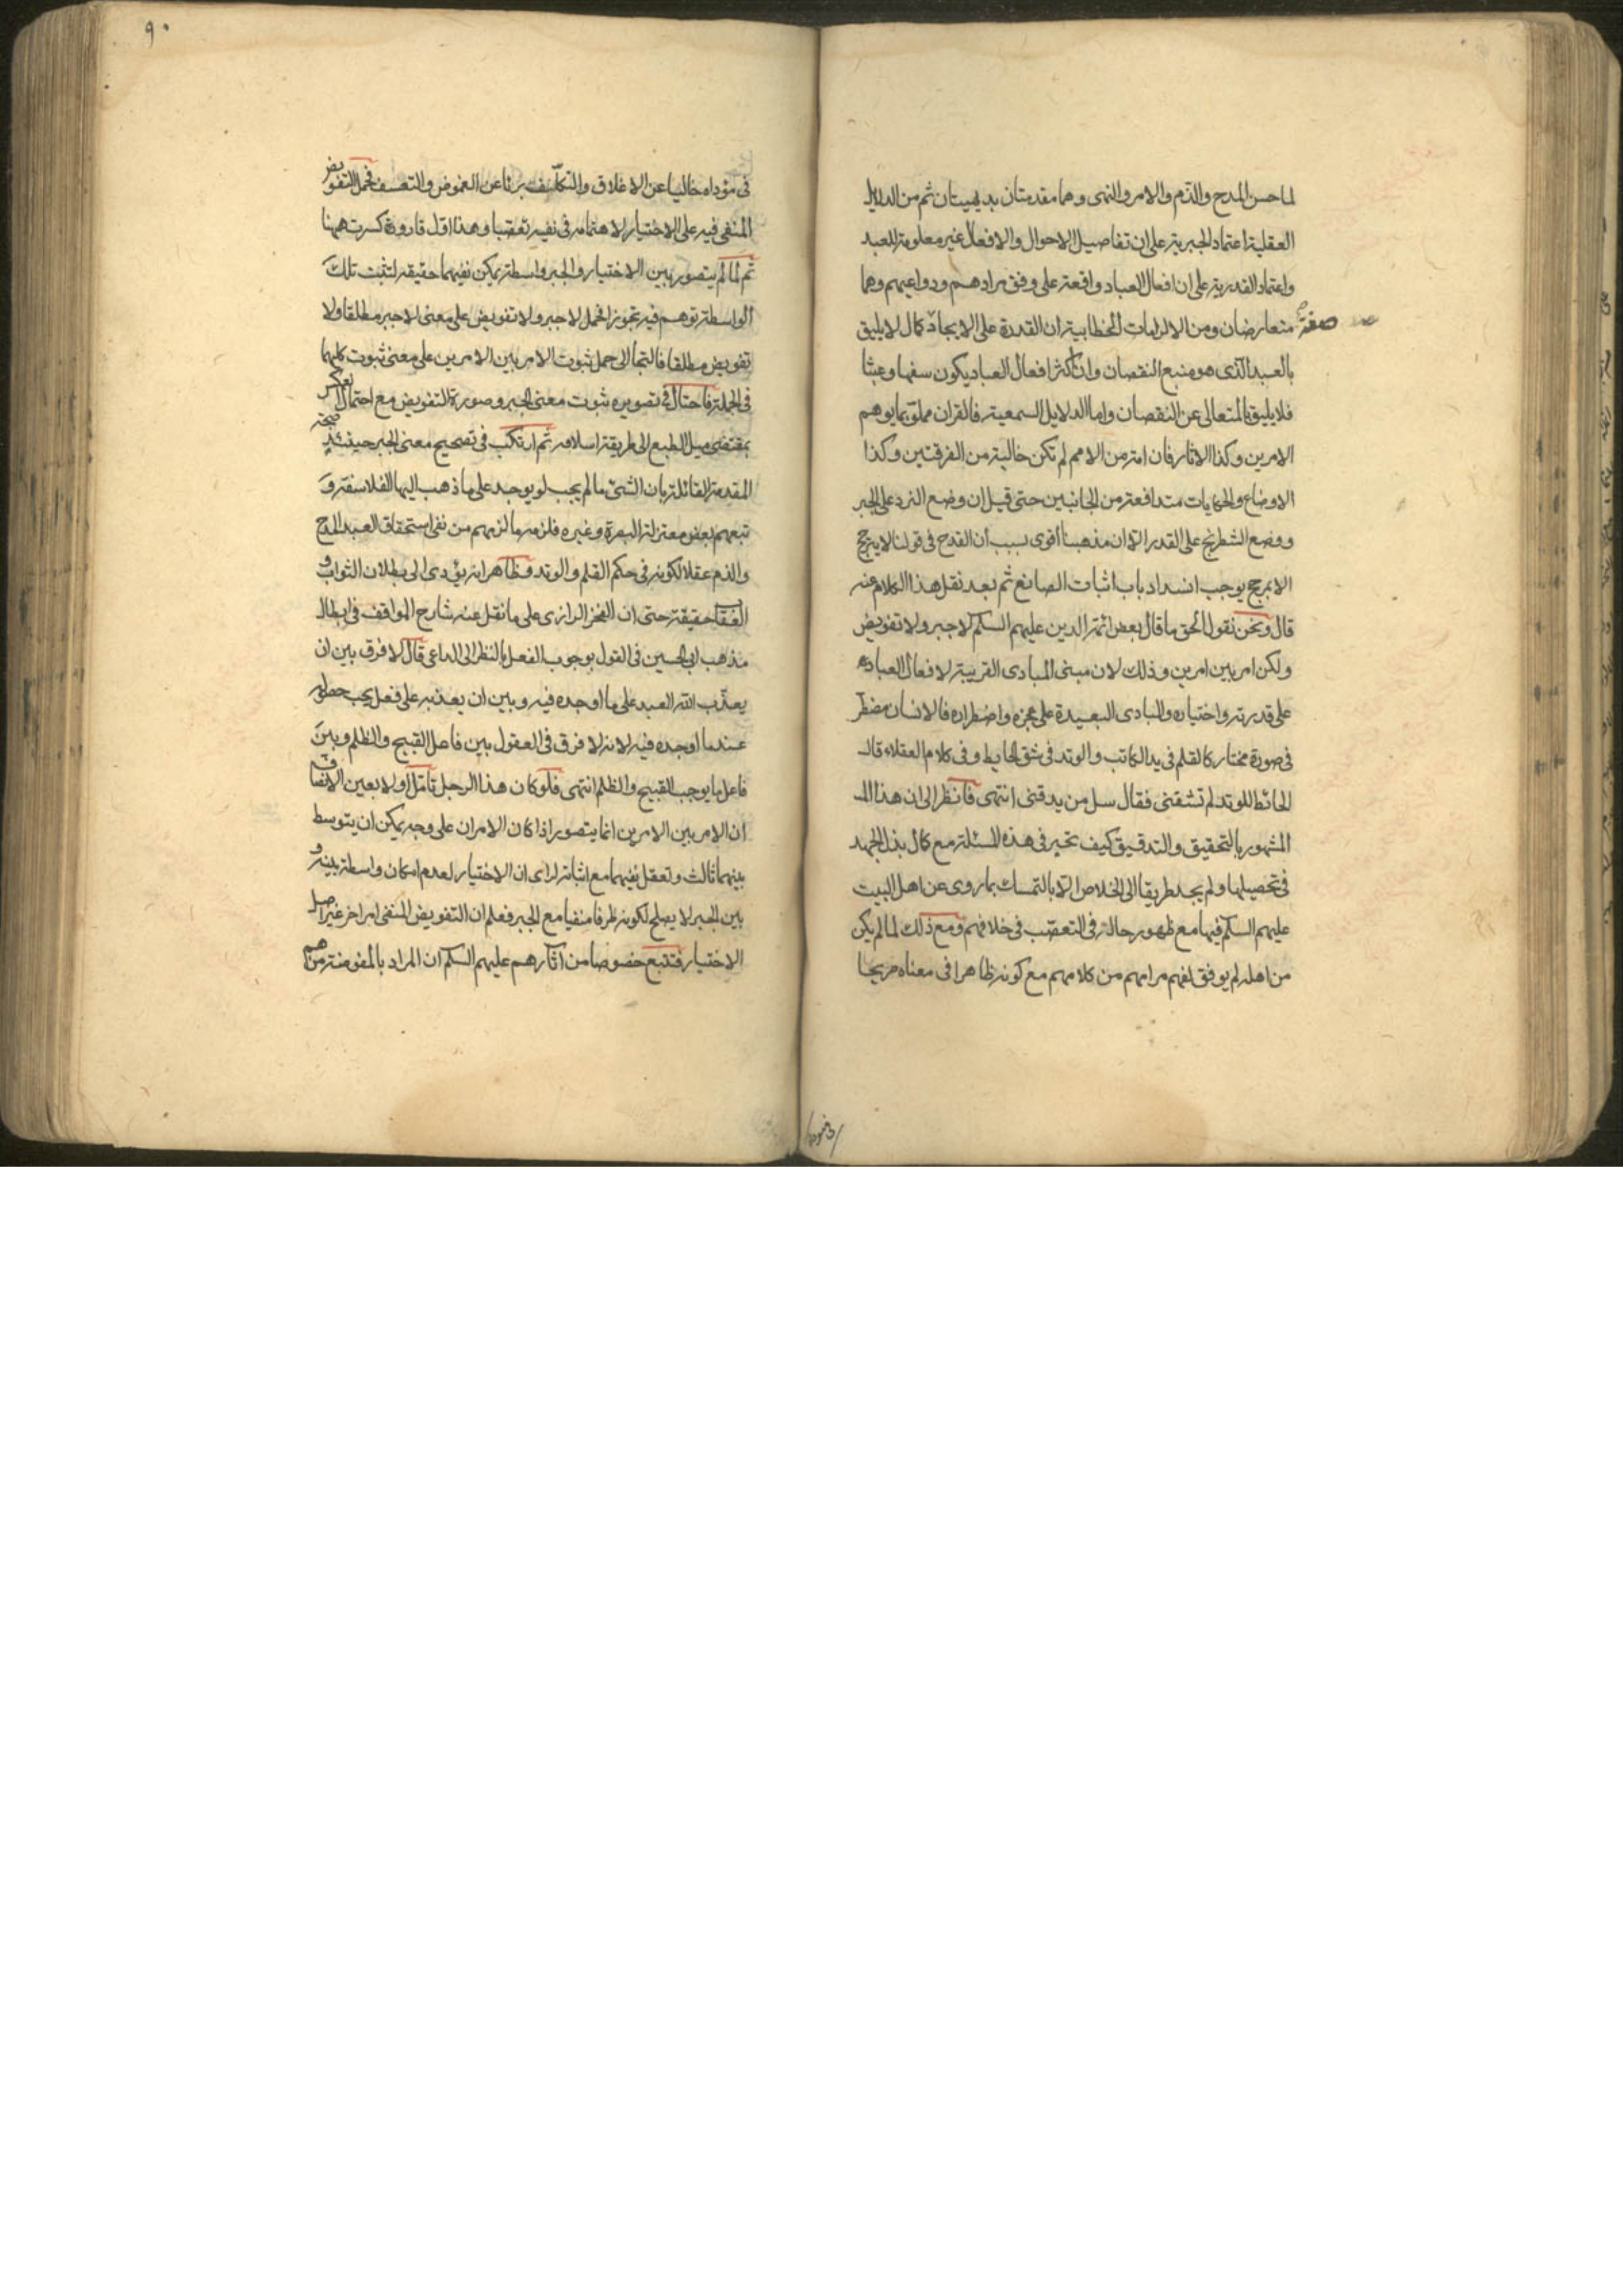 لما حسن المدح والذم والامر والنهى وهما مقدمتان بديهيتان ثم من الدلايل
العقلية اعتماد الجبرية على ان تفاصيل الاحوال والافعال غير معلومة للعبد
واعتماد القدرية على ان افعال العباد واقعة على وفق مرادهم ودواعيهم وهما
متعارضان ومن الالزامات الخطابية ان القدرة على الايجاد كمال لا يليق
صفة صح
بالعبد الذى هو منبع النقصان وان اكثر افعال العباد يكون سفها وعبثا
فلا يليق بالمتعالى عن النقصان واما الدلايل السمعية فالقران مملو بما يوهم
الامرين وكذا الاثار فان امة من الامم لم تكن خالية من الفرقتين وكذا
الاوضاع والحكايات متدافعة من الجانبين حتى قيل ان وضع النرد على الجبر
ووضع الشطرنج على القدر الا ان مذهبنا أقوى بسبب أن القدح فى قولنا لا يترجح
الا بمرجح يوجب انسداد باب اثبات الصانع ثم بعد نقل هذا الكلام عنه
قال ونحن نقول الحق ما قال بعض ائمة الدين عليهم السلم لا جبر ولا تفويض
ولكن امر بين امرين وذلك لان مبنى المبادى القريبة لافعال العباد
على قدرته واختياره والمبادى البعيدة على عجزه واضطراره فالانسان مضطر
فى صورة مختار كالقلم فى يد الكاتب والوتد فى شق الحايط وفى كلام العقلاء قال
الحائط للوتد لم تشقنى فقال سل من يدقنى انتهى فانظر الى ان هذا الـ
المشهور بالتحقيق والتدقيق كيف تحير فى هذه المسئلة مع كمال بذل الجهد
فى تحصيلها ولم يجد طريقا الى الخلاص الا بالتمسك بما روى عن اهل البيت
عليهم السلم فيها مع ظهور حالته فى التعصب فى خلافهم ومع ذلك لما لم يكن
من اهله لم يوفق لفهم مرامهم من كلامهم مع كونه ظاهرا فى معناه صريحا
٩٠
فى مؤداه خاليا عن الاغلاق والتكلف بريئا عن الغموض والتعسف فحمل التفويض
المنفى فيه على الاختيار لاهتمامه فى نفيه تعصبا وهذا اول قارورة كسرت ههنا
ثم لما لم يتصور بين الاختيار والجبر واسطة يمكن نفيهما حقيقة لتثبت تلك
الواسطة توهم فيه تجوز الحمل لا جبر ولا تفويض على معنى لا جبر مطلقا ولا
تفويض مطلقا فالتجأ الى حمل ثبوت الامر بين الامرين على معنى ثبوت كليهما
فى الجملة فاحتال فى تصويره ثبوت معنى الجبر وصورة التفويض مع احتمال العكس
بمقتضى ميل الطبع الى طريقة اسلافه ثم ارتكب فى تصحيح معنى الجبر حينئذ صحة
المقدمة القائلة بان الشئ ما لم يجب لو يوجد على ما ذهب اليها الفلاسفة و
تبعهم بعض معتزلة البصرة وغيره فلزمه ما لزمهم من نفى استحقاق العبد المدح
والذم عقلا لكونه فى حكم القلم والوتد وظاهر انه يؤدى الى بطلان الثواب و
العقاب حقيقة حتى ان الفخر الرازى على ما نقل عنه شارح المواقف فى ابطال
مذهب ابى الحسين فى القول بوجوب الفعل بالنظر الى الداعى قال لا فرق بين ان
يعذب الله العبد على ما اوجده فيه وبين ان يعذبه على فعل يجب حصوله
عند ما اوجده فيه لانه لا فرق فى العقول بين فاعل القبيح والظلم وبين
فاعل ما يوجب القبيح والظلم انتهى فلو كان هذا الرجل تأمل اولا بعين الانصاف
ان الامر بين الامرين انما يتصور اذا كان الامران على وجه يمكن ان يتوسط
بينهما ثالث وتعقل نفيهما مع اثباته لرأى ان الاختيار لعدم امكان واسطة بينه و
بين الجبر لا يصلح لكونه طرفا منفيا مع الجبر فعلم ان التفويض المنفى امر اخر غير اصل
الاختيار فتتبع خصوصا من اثارهم عليهم السلم ان المراد بالمفوضة من هم